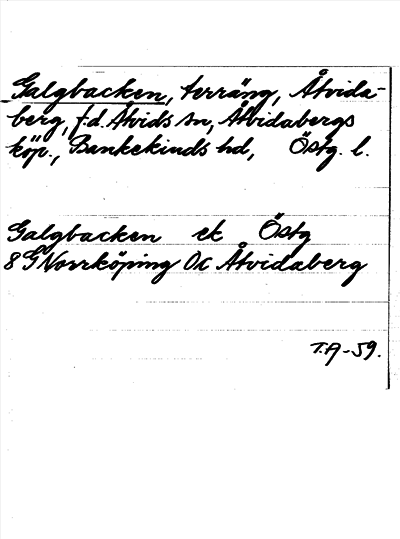 Galgbacken, terräng, Åtvida-
berg, f.d. Åtvids sn, Åtvidabergs
köp., Bankekinds hd, Östg. l.
Galgbacken ek Östg
8 G Norrköping 0c Åtvidaberg
T.A-59.